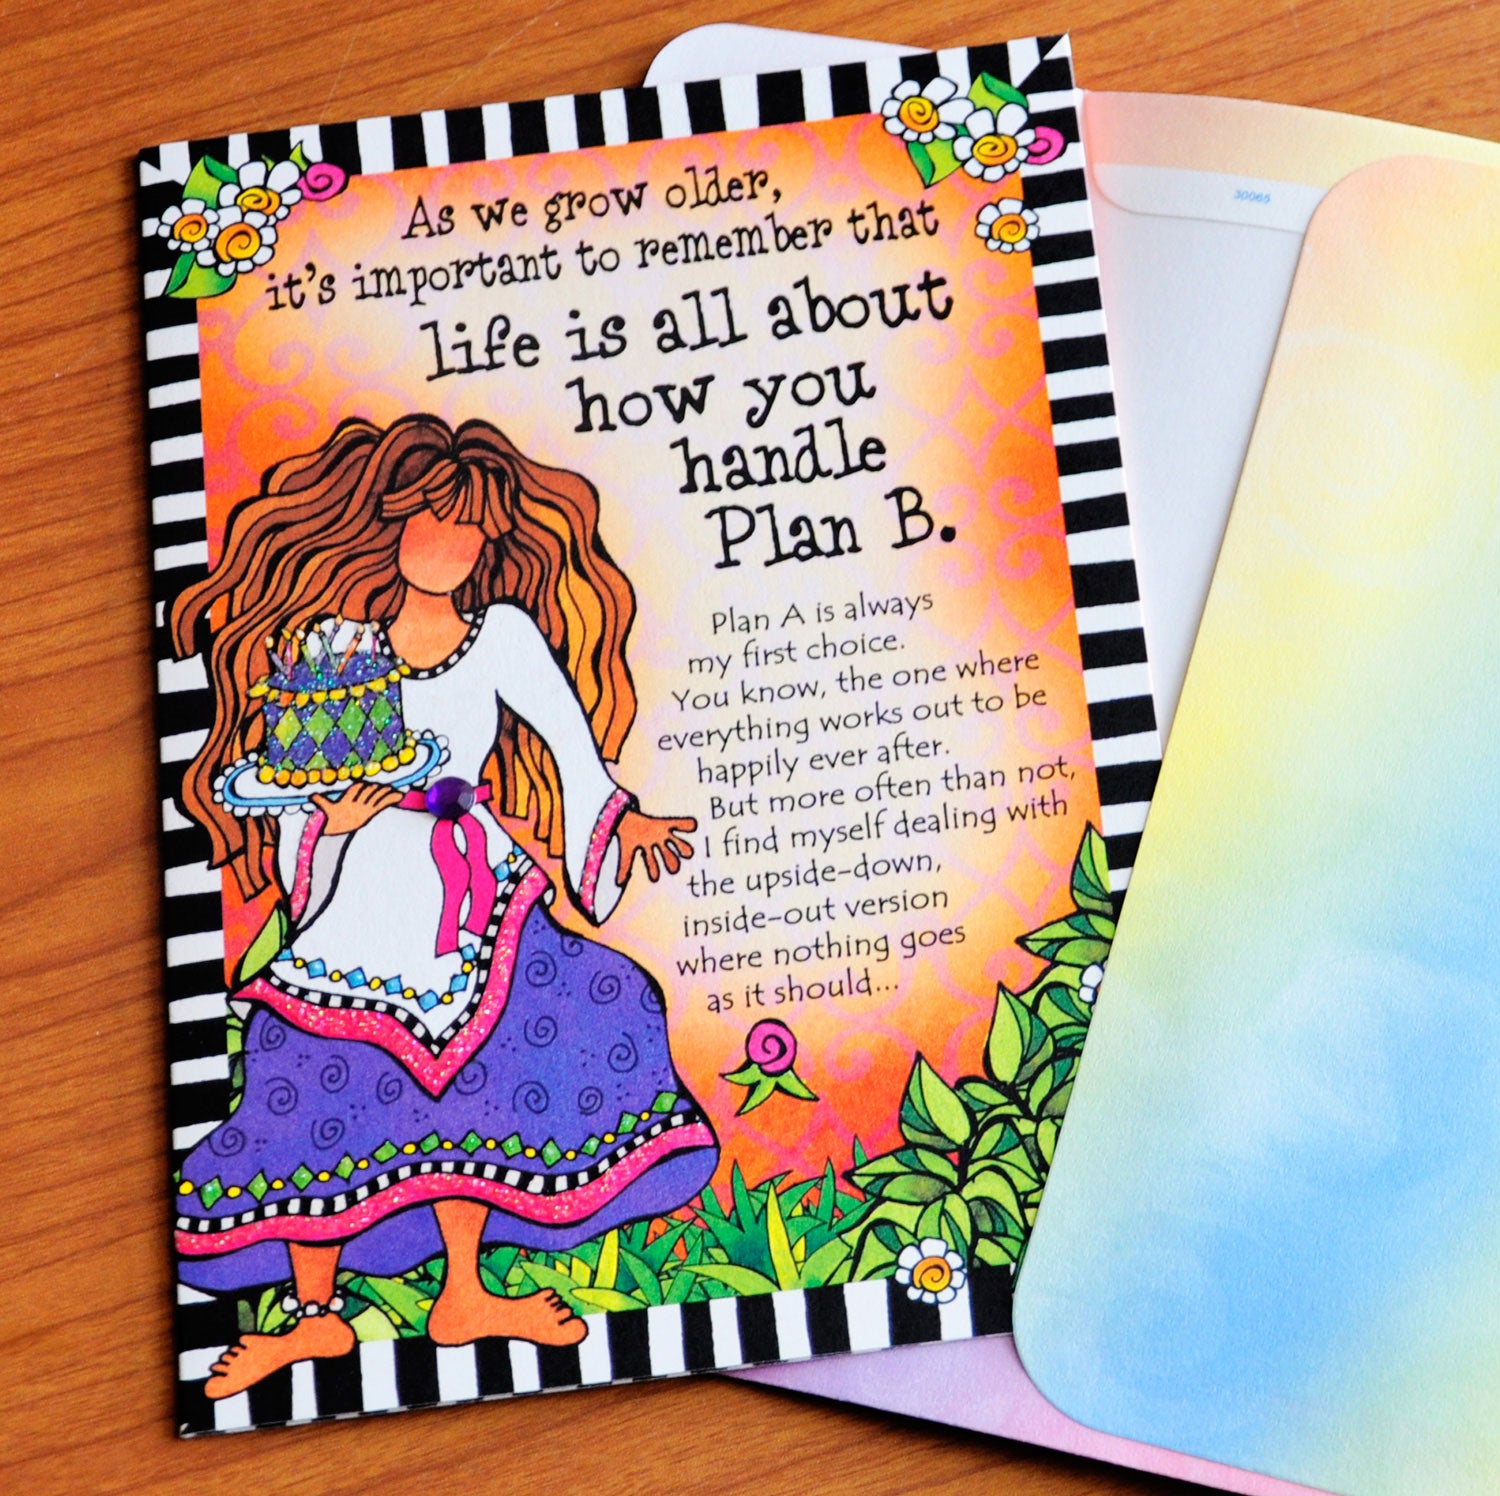 As we grow older,
it's important to remember that
life is all about
how you
handle
Plan B.
Plan A is always
my first choice.
You know, the one where
everything works out to be
happily ever after.
But more often than not,
I find myself dealing with
the upside-down,
inside-out version
where nothing goes
as it should...
30065